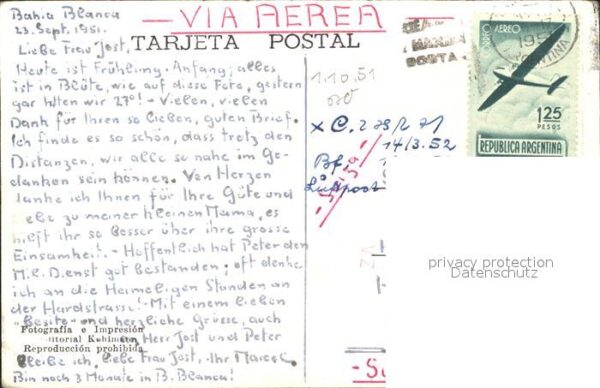 Bahia Blanca
23. Sept. 1951.
Liebe Frau Jost,
Heute ist Frühling-Anfang; alles
ist in Blüte, wie auf diese Foto, gestern
gar hatten wir 27°! - Vielen, vielen
Dank für Ihren so lieben, guten Brief.
Ich finde es so schön, dass trotz den
Distanzen, wir alle so nahe im Ge-
danken sein können. Von Herzen
danke ich Ihnen für Ihre Güte und
Liebe zu meiner kleinen Mama, es
hilft ihr so besser über ihre grosse
Einsamkeit. - Hoffentlich hat Peter den
Dienst gut bestanden; oft denke
ich an die Heimeligen Stunden an
der Hardstrasse! - Mit einem lieben
und herzliche Grüsse, auch
Herr Jost und Peter
bleibe ich, liebe Frau Jost, Ihr Marcel.
Bin noch 3 Monate in B. Blanca!
Fotografía e Impresión
Editorial
Reproducción prohibida
- VIA AEREA
TARJETA POSTAL
1.10.51
14/3.52
Bf.
Luftpost
CORREO AEREO
1.25
PESOS
REPUBLICA ARGENTINA
privacy protection
Datenschutz